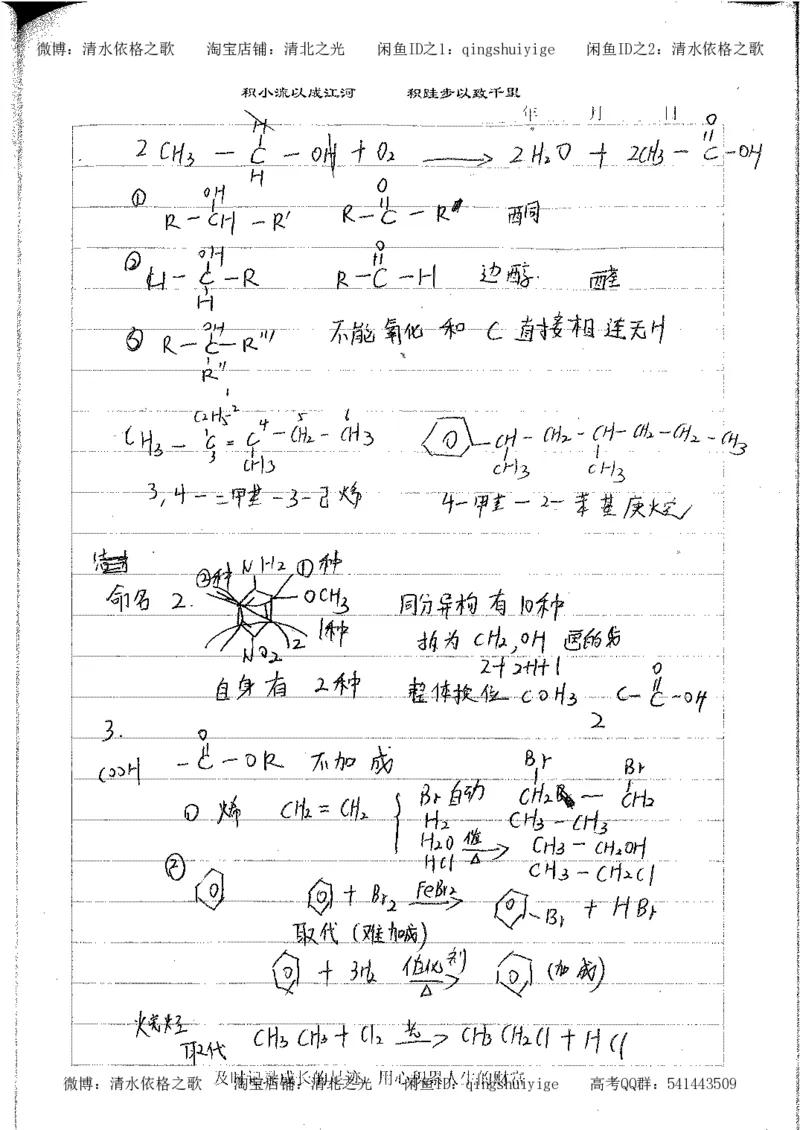 微博：清水依格之歌 淘宝店铺：清北之光 闲鱼ID之1：qingshuiyige 闲鱼ID之2：清水依格之歌
积小流以成江河 积跬步以致千里
年 月 日
2CH3 - C - OH + O2 → 2H2O + 2CH3 - C - OH
H H O
① R - CH - R' R - C - R 酮
OH O
② H - C - R R - C - H 边醇. 醛
OH H O
③ R - C - R''' 不能氧化 和 C 直接相连无H
OH R''
1
C2H5 2 4 5 6
CH3 - C = C - CH2 - CH3 CH - CH2 - CH - CH2 - CH2 - CH3
3 CH3 CH3 CH3
3,4-二甲基-3-己烯 4-甲基-2-苯基庚烷
②种 NH2 ①种
命名 2. OCH3 同分异构有10种
1种 拆为 CH2,OH
NO2 2 2+2+1+1
自身有 2种 整体换位 COH3 C - C - OH
O
2
3.
COOH - C - OR 不加成
O
① 烯 CH2 = CH2 Br自动 CH2B - CH2
Br Br
H2 CH3 - CH3
H2O 催 △ → CH3 - CH2OH
HCl CH3 - CH2Cl
② + Br2 FeBr2 → Br + HBr
取代（难加成）
+ 3H2 催化剂 △ → （加成）
烷烃
取代 CH3CH3 + Cl2 光 → CH3CH2Cl + HCl
及时记录成长的足迹 用心积累人生的财富
微博：清水依格之歌 淘宝店铺：清北之光 闲鱼ID之1：qingshuiyige 高考QQ群：541443509